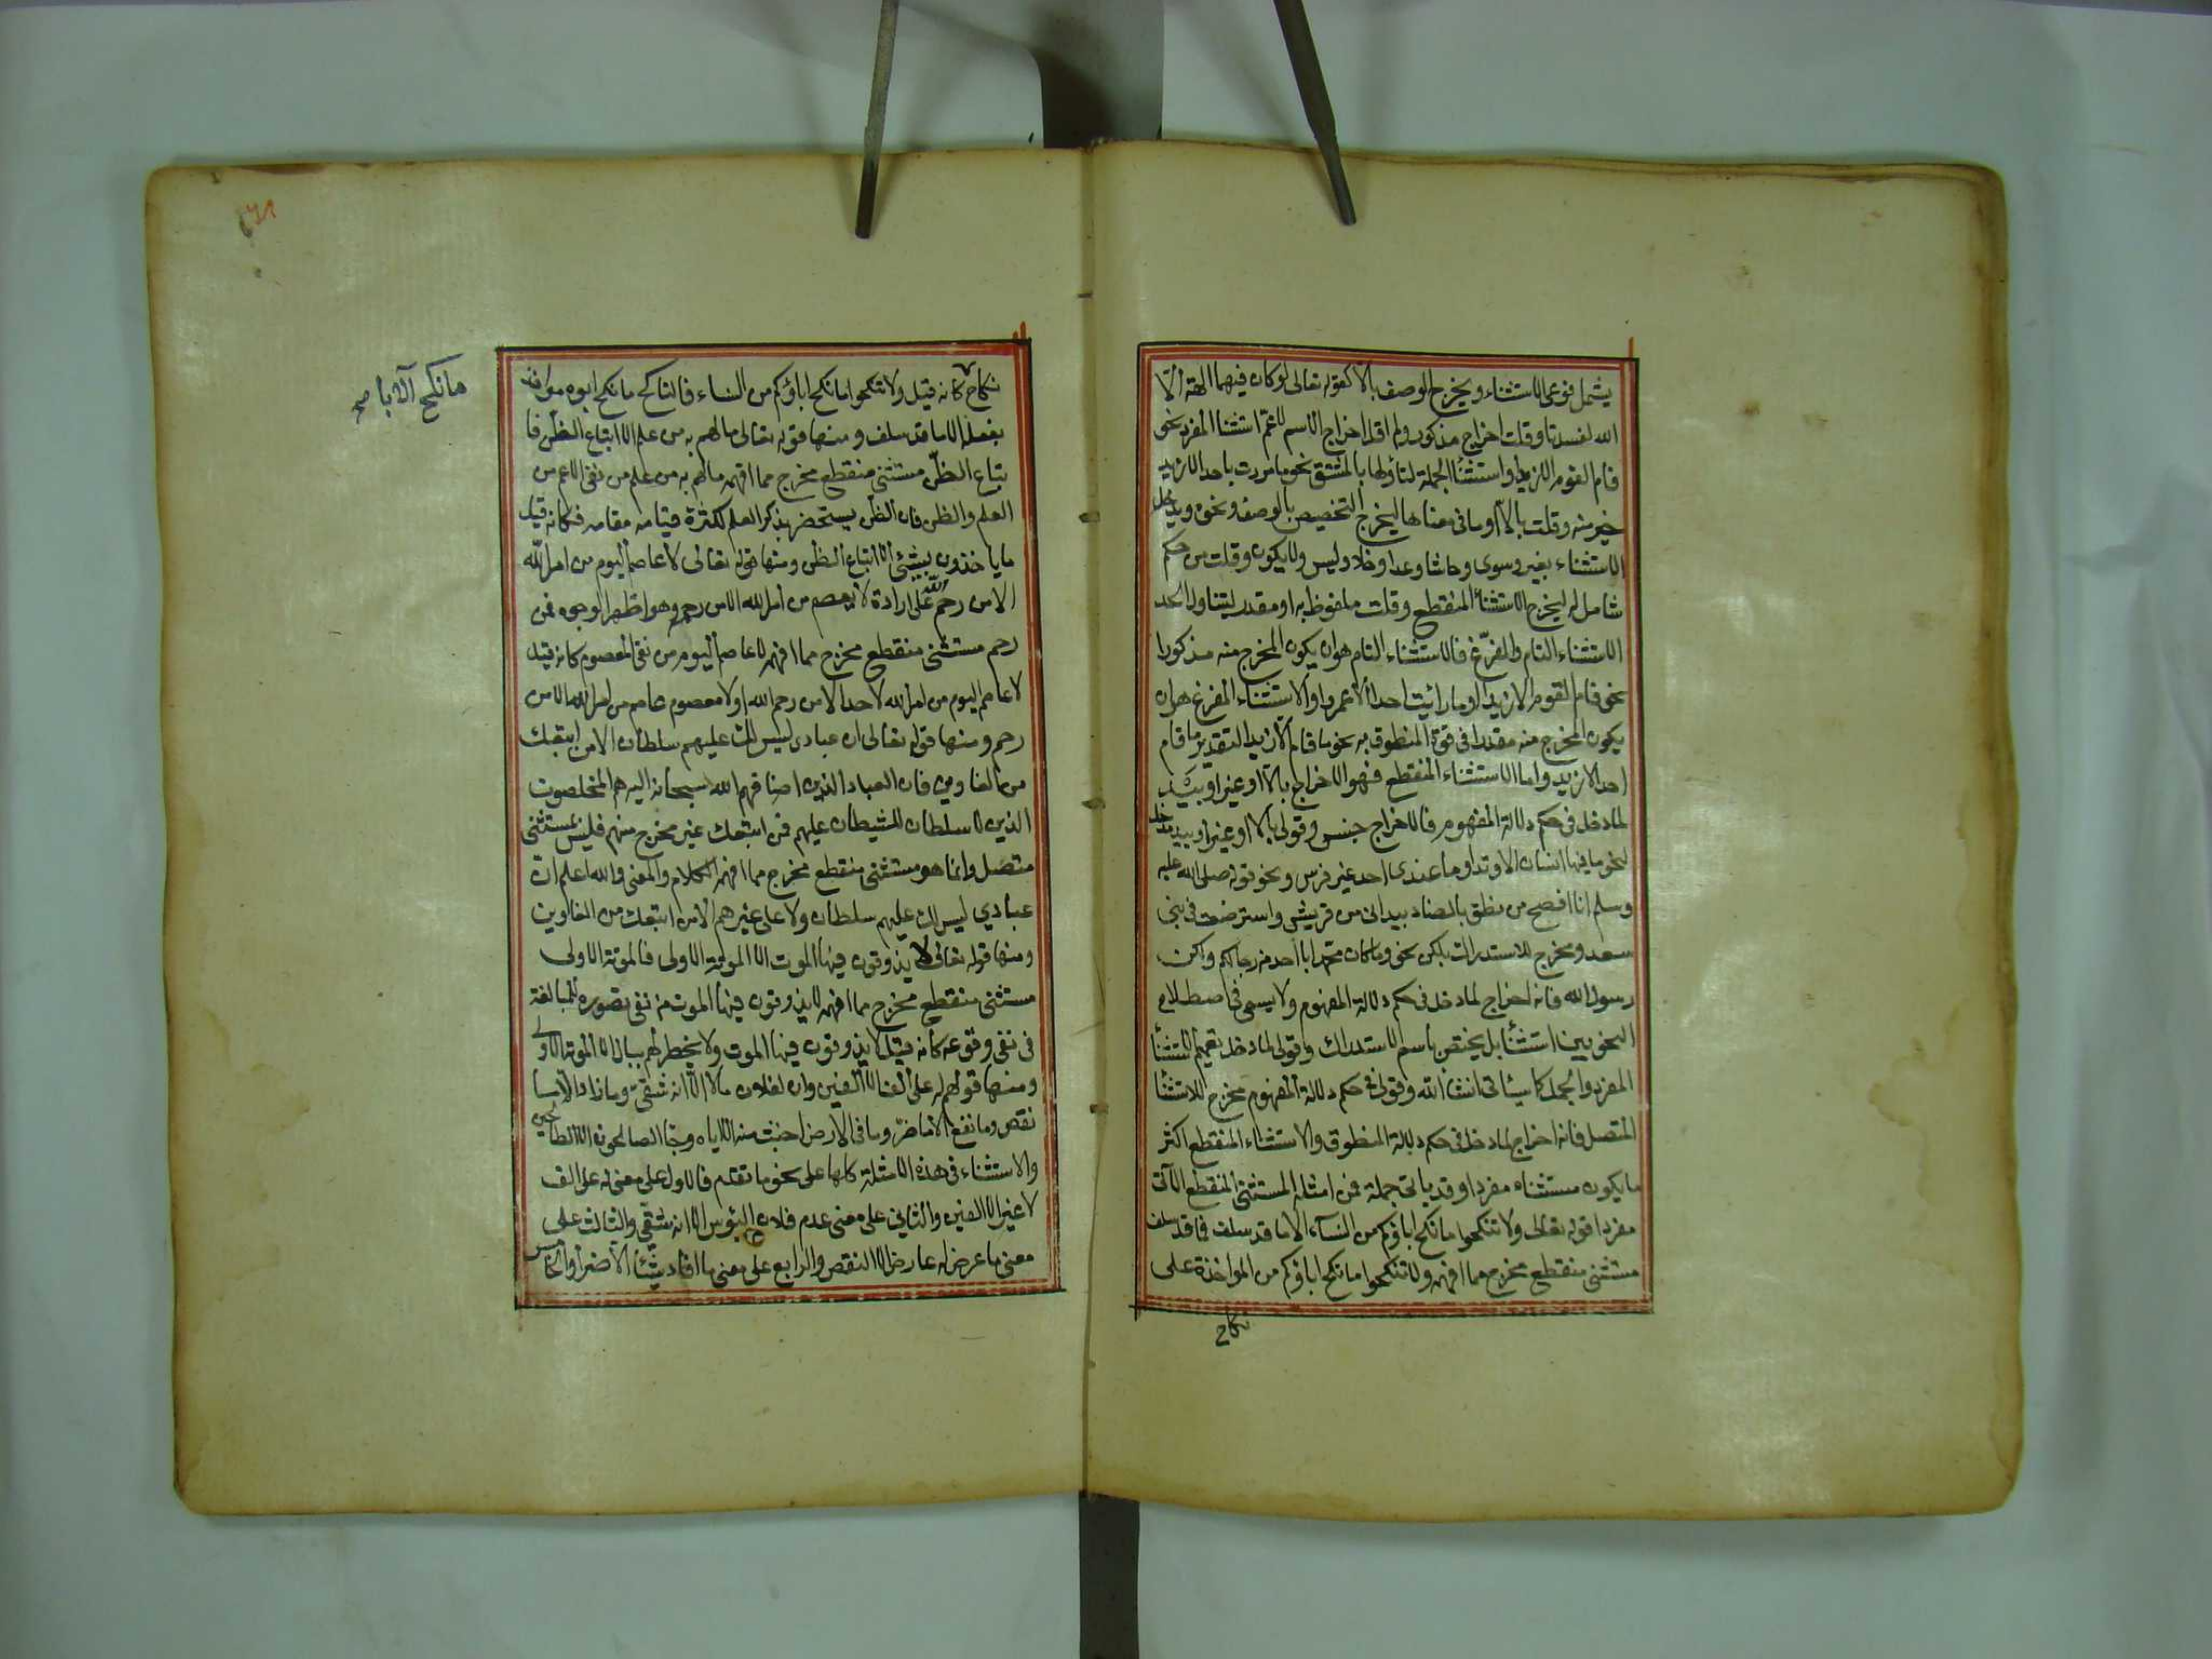 يشمل نوعي الاستثناء ويخرج الوصف بالا كقوله تعالى لوكان فيهما الهة الّا
الله لفسدتا وقلت اخراج مذكور ولم اقل اخراج الاسم للاعم استثنا المفرد نحو
قام القوم الا زيدا واستثنا الجملة لتأولها بالمشتق نحو ما مررت باحد الا زيد
خير منه وقلت بالا او ما في معناها ليخرج التخصيص بالوصف ونحوه ويدخل
الاستثناء بغير وسوى وحاشا وعدا وخلا وليس ولا يكون وقلت من حكم
شامل له ليخرج الاستثنا المنقطع وقلت ملفوظ به او مقدر ليتناول الحد
الاستثناء التام والمفرّغ فالاستثناء التام هو ان يكون المخرج منه مذكورا
نحو قام القوم الا زيدا وما رائيت احدا الا عمروا والاستثناء المفرغ هو ان
يكون المخرج منه مقدرا في قوة المنطوق به نحو ما قام الا زيد التقدير ما قام
احد الا زيد واما الاستثناء المنقطع فهو الاخراج بالا او غير او بيد
لما دخل في حكم دلالة المفهوم فالاخراج جنس وقولي بالا او غير او بيد مدخل
لنحو ما فيها انسان الا وتدا وما عندى احد غير فرس ونحو قوله صلى الله عليه
وسلم انا افصح من نطق بالضاد بيد اني من قريش واسترضعت في بني
سعد ومخرج للاستدراك بلكن نحو وما كان محمد ابا احد من رجالكم ولكن
رسول الله فانه اخراج لما دخل في حكم دلالة المفهوم ولا يسمى في اصطلاح
النحويين استثنأ بل يختص باسم الاستدراك وقولي لما دخل تعميم لاستثنأ
المفرد والجمل كما سيئاتي انشا الله وقولي في حكم دلالة المفهوم مخرج للاستثنا
المتصل فانه اخراج لما دخل في حكم دلالة المنطوق والاستثناء المنقطع اكثر
ما يكون مستثناه مفردا وقد يأتي جملة فمن امثلة المستثنى المنقطع الآتى
مفردا قوله تعالى ولا تنكحوا ما نكح اباؤكم من النسآء الا ما قد سلف فما قد سلف
مستثنى منقطع مخرج مما افهمه ولا تنكحوا ما نكح اباؤكم من المواخذة على
نكاح
نكاح كانه قيل ولا تنكحوا ما نكح اباؤكم من النساء فالناكح ما نكح ابوه مواخذ
بفعله الا ما قد سلف ومنها قوله تعالى مالهم به من علم الا اتباع الظن فا
تباع الظنّ مستثنى منقطع مخرج مما افهمه مالهم به من علم من نفي الاعم من
العلم والظن فان الظن يستحضر بذكر العلم لكثرة قيامه مقامه فكانه قيل
ما ياخذون بشئ الا اتباع الظن ومنها قوله تعالى لا عاصم اليوم من امر الله
الا من رحم الله على ارادة لا يعصم من امر الله الا من رحمه وهو اظهر الوجوه فمن
رحم مستثنى منقطع مخرج مما افهمه لا عاصم اليوم من نفى المعصوم كانه قيل
لا عاصم اليوم من امر الله لاحد الا من رحم الله او لا معصوم عاصم من امر الله الا من
رحم ومنها قوله تعالى ان عبادى ليس لك عليهم سلطان الا من اتبعك
من الغاوين فان العباد الذين اضافهم الله سبحانه اليه هم المخلصون
الذين لا سلطان للشيطان عليهم فمن اتبعك غير مخرج منهم فليس بمستثنى
متصل وانما هو مستثنى منقطع مخرج مما افهمه الكلام والمعنى والله اعلم ان
عبادي ليس لك عليهم سلطان ولا على غيرهم الا من اتبعك من الغاوين
ومنها قوله تعالى لا يذوقون فيها الموت الا الموتة الاولى فالموتة الاولى
مستثنى منقطع مخرج مما افهمه لا يذوقون فيها الموت من نفى تصوره للمبالغة
في نفى وقوعه كأنه قيل لا يذوقون فيها الموت ولا يخطر لهم ببال الا الموتة الاولى
ومنها قولهم له على الف الا الفين وان لفلان مالا الا انه شقيّ وما زاد الا ما
نقص وما نفع الا ما ضرّ وما في الارض اخبث منه الا اياه وجا الصالحون الا الطالحين
والاستثناء في هذه الامثلة كلها على نحو ما تقدم فالاول على معنى له على الف
لا غير الا الفين والثاني على معنى عدم فلان البؤس الا انه شقي والثالث على
معنى ما عرض له عارض الا النقص والرابع على معنى ما افاد شيئا الا ضرا والخامس
ما نكح الآباء صح